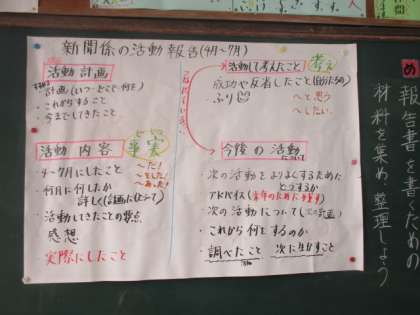 新聞係の活動報告(4月〜9月)
活動計画
計画(いつ・どこで・何を)
・これからすること
・今までしてきたこと
活動内容
事実
〜だ!
〜をした!
〜あった!
・4〜9月にしたこと
・何月に何したか
詳しく(計画にそって)
・活動してきたことの要点
感想
実際にしたこと
活動して考えたこと
考え
・成功や反省したこと(自分たちの)
・ふり
〜と思う
〜したい。
今後の活動
について
・次の活動をよりよくするために
どうするか
アドバイス(来年のために今後す)
・次の活動について(しての計画)
・これから何とするのか
・調べたこと 次に生かすこと
め 報告書を書くための
材料を集め、整理しよう